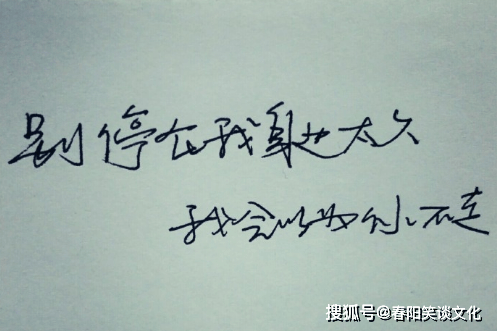 别停在我身边太久
我会以为你不走
搜狐号@春阳笑谈文化